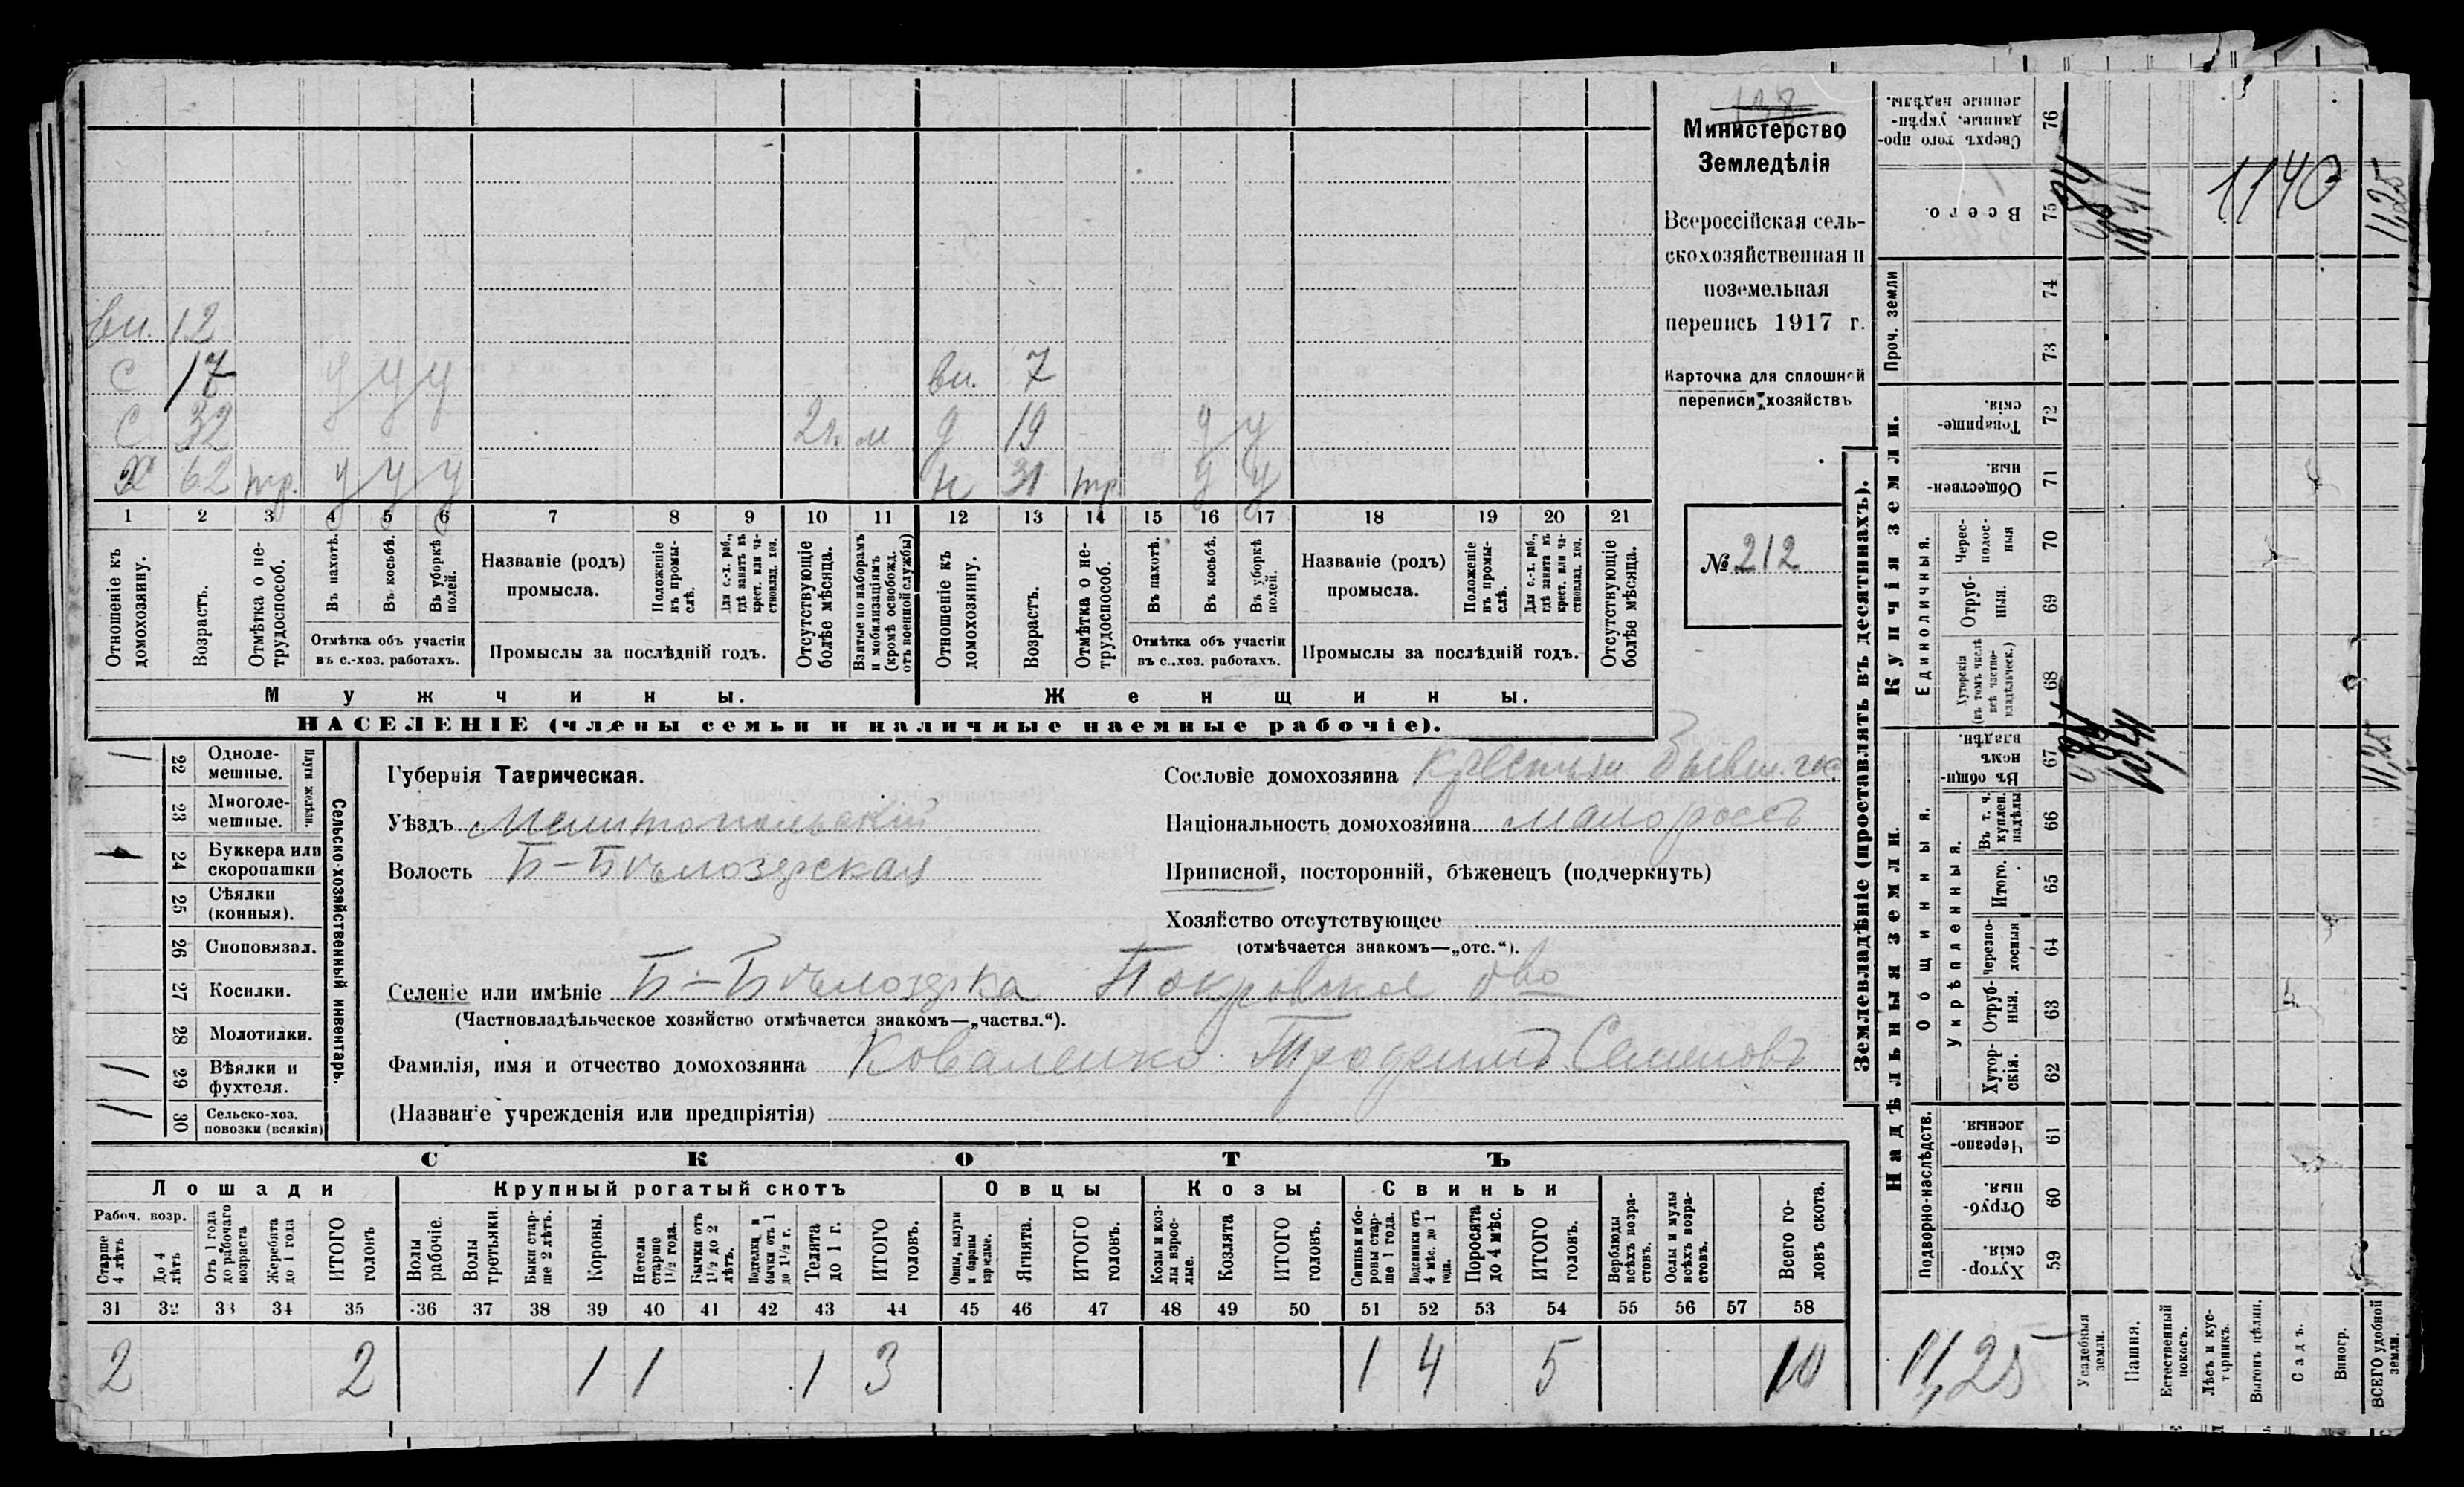 вн. 12
с 17 у у у вн. 7
с 32 2 г. м д 19 у у
х 62 тр. у у у н 31 тр. у у
1 2 3 4 5 6 7 8 9 10 11 12 13 14 15 16 17 18 19 20 21
Отношеніе къ домохозяину.
Возрастъ.
Отмѣтка о не-трудоспособ.
Въ пахотѣ.
Въ косьбѣ.
Въ уборкѣ полей.
Отмѣтка объ участіи въ с.-хоз. работахъ.
Названіе (родъ) промысла.
Положеніе въ промы-слѣ.
Для с.-х. раб., гдѣ занятъ въ крест. или ча-стновлад. хоз.
Промыслы за послѣдній годъ.
Отсутствующіе болѣе мѣсяца.
Взятые по наборамъ и мобилизаціямъ (кромѣ освобожд. отъ военной службы)
Отношеніе къ домохозяину.
Возрастъ.
Отмѣтка о не-трудоспособ.
Въ пахотѣ.
Въ косьбѣ.
Въ уборкѣ полей.
Отмѣтка объ участіи въ с..хоз. работахъ.
Названіе (родъ) промысла.
Положеніе въ промы-слѣ.
Для с.-х. раб., гдѣ занята въ крест. или ча-стновлад. хоз.
Промыслы за послѣдній годъ.
Отсутствующіе болѣе мѣсяца.
Мужчины. Женщины.
НАСЕЛЕНІЕ (члены семьи и наличные наемные рабочіе).
Министерство
Земледѣлія
Всероссійская сель-
скохозяйственная и
поземельная
перепись 1917 г.
Карточка для сплошной
переписи хозяйствъ
№ 212
22 Одноле-мешные.
23 Многоле-мешные.
Плуги желѣзн.
24 Буккера или скоропашки
25 Сѣялки (конныя).
26 Сноповязал.
27 Косилки.
28 Молотилки.
29 Вѣялки и фухтеля.
30 Сельско-хоз. повозки (всякія)
Сельско-хозяйственный инвентарь.
Губернія Таврическая.
Уѣздъ Мелитопольскій
Волость Б-Бѣлозерская
Сословіе домохозяина
Національность домохозяина малороссъ
Приписной, посторонній, бѣженецъ (подчеркнуть)
Хозяйство отсутствующее
(отмѣчается знакомъ—„отс.“).
Селеніе или имѣніе Б-Бѣлозерка Покровское
(Частновладѣльческое хозяйство отмѣчается знакомъ—„частвл.“).
Фамилія, имя и отчество домохозяина Коваленко Семеновъ
(Названіе учрежденія или предпріятія)
СКОТЪ
Лошади Крупный рогатый скотъ Овцы Козы Свиньи
Рабоч. возр.
Старше 4 лѣтъ
До 4 лѣтъ
Отъ 1 года до рабочаго возраста
Жеребята до 1 года
ИТОГО головъ
Волы рабочіе.
Волы третьяки.
Быки стар-ше 2 лѣтъ.
Коровы.
Нетели старше 1½ года.
Бычки отъ 1½ до 2 лѣтъ.
Подтелки и бычки отъ 1 до 1½ г.
Телята до 1 г.
ИТОГО головъ.
Овцы, валухи и бараны взрослые.
Ягнята.
ИТОГО головъ.
Козы и коз-лы взрос-лые.
Козлята
ИТОГО головъ.
Свиньи и бо-ровы стар-ше 1 года.
Подсвинки отъ 4 мѣс. до 1 года.
Поросята до 4 мѣс.
ИТОГО головъ.
Верблюды всѣхъ возра-стовъ.
Ослы и мулы всѣхъ возра-стовъ.
Всего го-ловъ скота.
31 32 33 34 35 36 37 38 39 40 41 42 43 44 45 46 47 48 49 50 51 52 53 54 55 56 57 58
2 2 1 1 1 3 1 4 5 10
Землевладѣніе (проставлять въ десятинахъ).
Надѣльныя земли. Купчія земли. Проч. земли
Подворно-наслѣдств.
Общинныя.
Укрѣпленныя.
Единоличныя.
59 Хутор-скія.
60 Отруб-ныя.
61 Черезпо-лосныя.
62 Хутор-скія.
63 Отруб-ныя.
64 Черезпо-лосныя
65 Итого.
66 Въ т. ч. куплен. надѣлы
67 Въ общин-номъ владѣн.
68 Хуторскія (въ томъ числѣ всѣ частно-владѣльческ.)
69 Отруб-ныя.
70 Черес-полос-ныя
71 Обществен-ныя.
72 Товарище-скія.
73
74
75 Всего.
76 Сверхъ того про-данные, укрѣп-ленные надѣлы.
Усадебныя земли.
Пашня. 10,41 10,41
Естественный покосъ.
Лѣсъ и кус-тарникъ.
Выгонъ цѣлин.
Садъ.
Виногр.
ВСЕГО удобной земли. 11,25 11,25
1140
11,25